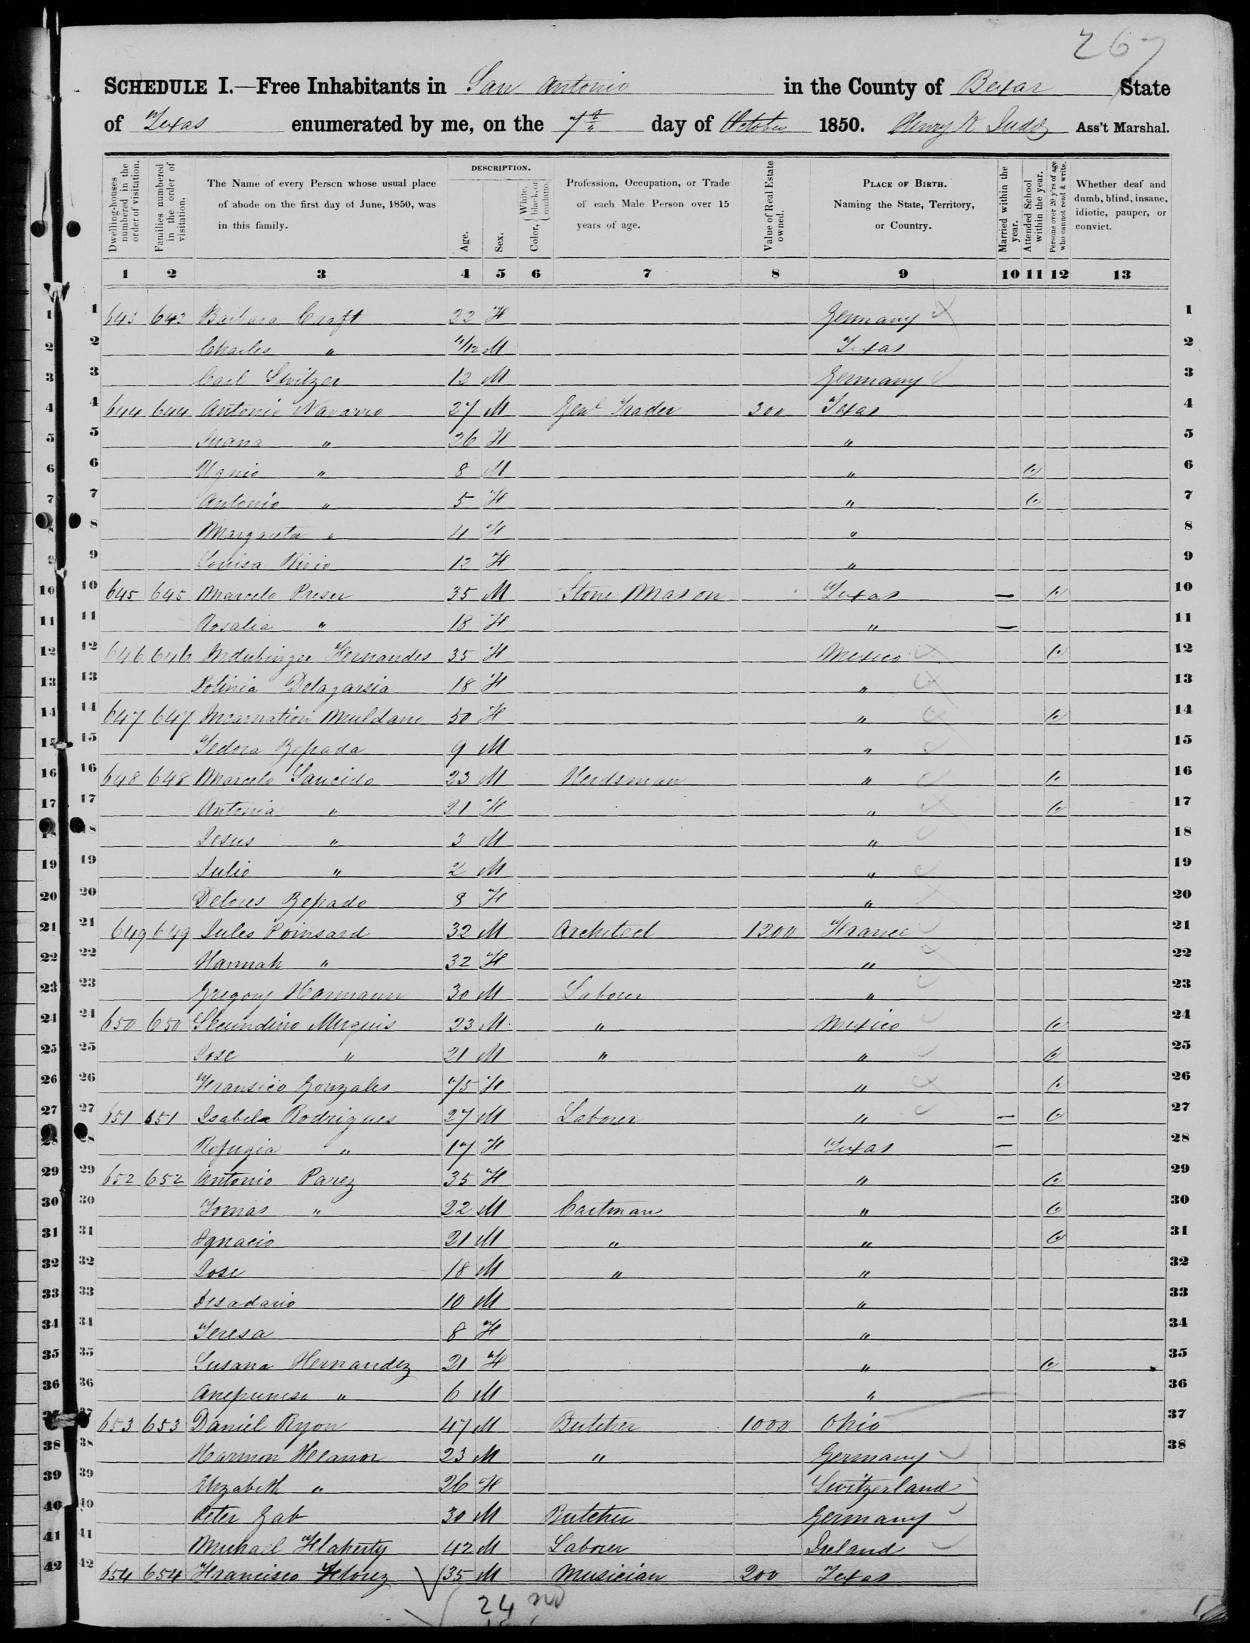 267
SCHEDULE I.—Free Inhabitants in San Antonio in the County of Bexar State
of Texas enumerated by me, on the 7th day of October 1850. Henry K Judd Ass't Marshal.
Dwelling-houses numbered in the order of visitation.
Families numbered in the order of visitation.
The Name of every Person whose usual place of abode on the first day of June, 1850, was in this family.
DESCRIPTION.
Age.
Sex.
Color, White, black, or mulatto.
Profession, Occupation, or Trade of each Male Person over 15 years of age.
Value of Real Estate owned.
PLACE OF BIRTH. Naming the State, Territory, or Country.
Married within the year.
Attended School within the year.
Persons over 20 y'rs of age who cannot read & write.
Whether deaf and dumb, blind, insane, idiotic, pauper, or convict.
1 2 3 4 5 6 7 8 9 10 11 12 13
1 643 643 Barbara Craft 22 F Germany 1
2 Charles " 4/12 M Texas 2
3 Carl Switzer 12 M Germany 3
4 644 644 Antonio Navarro 27 M Genl Trader 300 Texas 4
5 Juana " 26 F " 5
6 " 8 M " 6
7 Antonio " 5 F " 7
8 Margareta " 4 F " 8
9 Louisa 12 F " 9
10 645 645 Marcelo 35 M Stone Mason Texas — 10
11 Rosalia " 18 F " — 11
12 646 646 Fernandes 35 F Mexico 12
13 Polinia Delagarsia 18 F " 13
14 647 647 Incarnation Muldane 50 F " 14
15 Tedora Zepada 9 M " 15
16 648 648 Marcelo Saucido 23 M Herdsman " 16
17 Antonia " 21 F " 17
18 Jesus " 3 M " 18
19 Julio " 2 M " 19
20 Delores Zepado 8 F " 20
21 649 649 Jules Poinsard 32 M Architect 1200 France 21
22 Hannah " 32 F " 22
23 Gregory Harmann 30 M Laborer " 23
24 650 650 Secundino Musquis 23 M " Mexico 24
25 Jose " 21 M " " 25
26 Fransico Gonzales 75 F " 26
27 651 651 Isabela Rodrigues 27 M Laborer " — 27
28 Refugia " 17 F Texas — 28
29 652 652 Antonio Parez 35 F " 29
30 Tomas " 22 M Cartman " 30
31 Ignacio 21 M " " 31
32 Jose 18 M " " 32
33 Desadario 10 M " 33
34 Teresa 8 F " 34
35 Susana Hernandez 21 F " 35
36 " 6 M " 36
37 653 653 Daniel Ryon 47 M Butcher 1000 Ohio 37
38 Harmon Heanor 23 M " Germany 38
39 Elizabeth " 26 F Switzerland
40 Peter Zab 30 M Butcher Germany
41 Michael Flaherty 42 M Laborer Ireland
42 654 654 Francisco Florez 35 M Musician 200 Texas
24 no